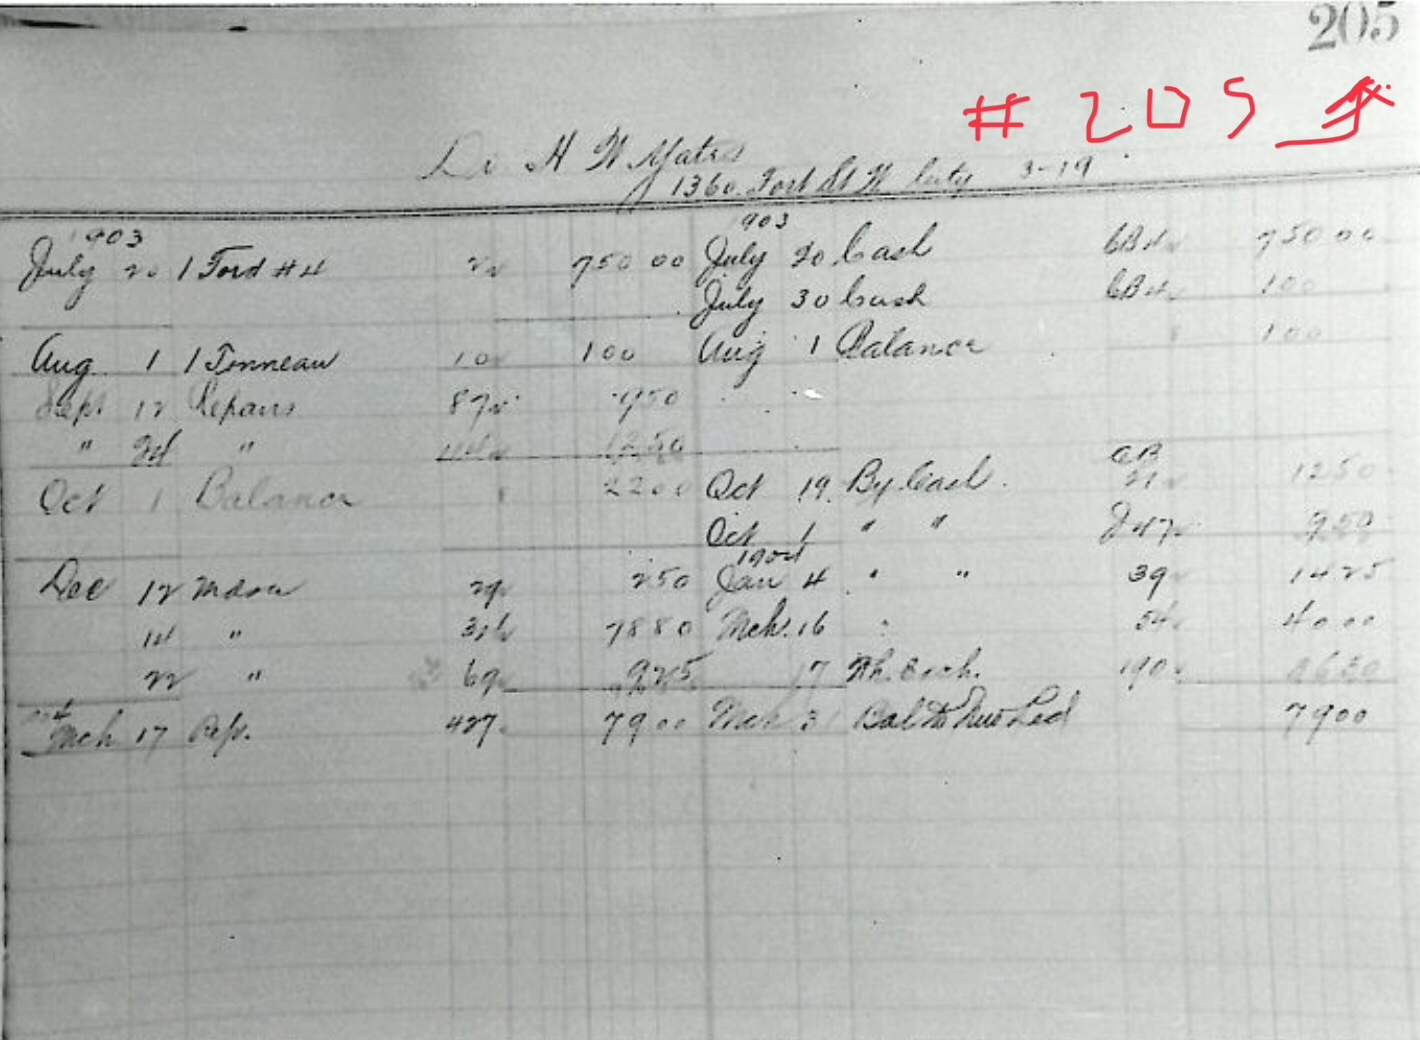 205
# 205
Dr H W Yates
1360 Fort St W City 3-19
1903 1903
July 20 1 Ford #4 2 750 00 July 20 Cash CB4 750 00
July 30 Cash CB4 100
Aug 1 1 Tonneau 10 100 Aug 1 Balance 100
Sept 12 Repairs 87 950
" 24 " 1250
Oct 1 Balance 2200 Oct 19 By Cash CB 1250
Oct 1 " " 247 950
1904
Dec 12 Mdse 29 250 Jan 4 " " 39 1425
14 " 7880 Mch. 16 " 54 4000
22 " 69 925 17 190
Mch 17 Rep. 427 7900 Mch 31 Bal to New Led 7900